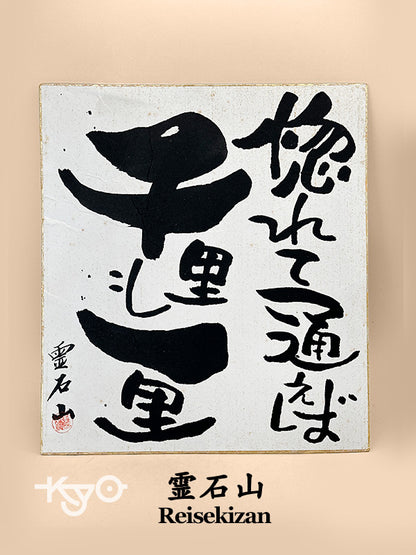 惚れて通えば
千里も一里
霊石山
KYO
霊石山
Reisekizan